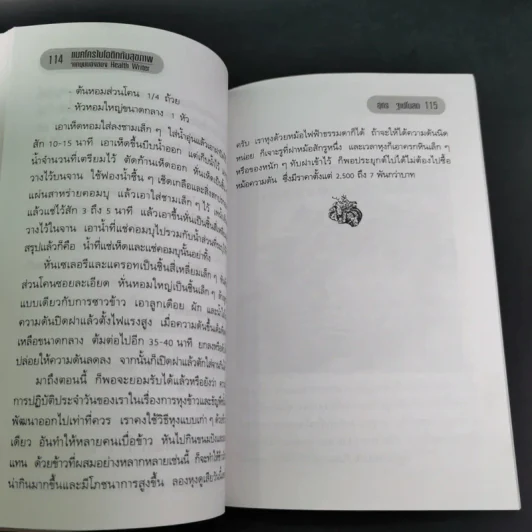 114 แมคโครไบโอติกกับสุขภาพ
จากมุมมองของ Health Writer
- ต้นหอมส่วนโคน 1/4 ถ้วย
- หัวหอมใหญ่ขนาดกลาง 1 หัว
เอาเห็ดหอมใส่ลงชามเล็ก ๆ ใส่น้ำอุ่นแล้ว
สัก 10-15 นาที เอาเห็ดขึ้นบีบน้ำออก แต่เก็บน้ำ
น้ำจำนวนที่เตรียมไว้ ตัดก้านเห็ดออก หั่นเห็ดเป็น
วางไว้บนจาน ใช้ฟองน้ำชื้น ๆ เช็ดเกลือและสิ่งสก
แผ่นสาหร่ายคอมบุ แล้วเอาใส่ชามเล็ก ๆ ไว้
แล้วแช่ไว้สัก 3 ถึง 5 นาที แล้วเอาขึ้นหั่นเป็นชิ้น
วางไว้ในจาน เอาน้ำที่แช่คอมบุไปรวมกับน้ำส่วนที่
สรุปแล้วก็คือ น้ำที่แช่เห็ดและแช่คอมบุนั้นอย่าทิ้ง
หั่นเซเลอรีและแครอทเป็นชิ้นสี่เหลี่ยมเล็ก ๆ
ส่วนโคนซอยละเอียด หั่นหอมใหญ่เป็นชิ้นเล็ก ๆ
แบบเดียวกับการซาวข้าว เอาลูกเดือย ผัก และน้ำ
ความดันปิดฝาแล้วตั้งไฟแรงสูง เมื่อความดันขึ้น
เหลือขนาดกลาง ต้มต่อไปอีก 35-40 นาที ยกลง
ปล่อยให้ความดันลดลง จากนั้นก็เปิดฝาแล้วตักใส่
มาถึงตอนนี้ ก็พอจะยอมรับได้แล้วหรือยังว่า
การปฏิบัติประจำวันของเราในเรื่องการหุงข้าวและธัญพืช
พัฒนาออกไปเท่าที่ควร เราคงใช้วิธีหุงแบบเก่า ๆ
เดียว อันทำให้หลายคนเบื่อข้าว หันไปกินขนมปัง
แทน ด้วยข้าวที่ผสมอย่างหลากหลายเช่นนี้ ก็จะทำให้ข้าว
น่ากินมากขึ้นและมีโภชนาการสูงขึ้น ลองหุงดูเสียวัน
115
ครับ เราหุงด้วยหม้อไฟฟ้าธรรมดาก็ได้ ถ้าจะให้ได้ความดันนิด
หน่อย ก็เจาะรูที่ฝาหม้อสักรูหนึ่ง และเวลาหุงก็เอาครกหินเล็ก ๆ
หรือของหนัก ๆ ทับฝาเข้าไว้ ก็พอประยุกต์ไปได้ไม่ต้องไปซื้อ
หม้อความดัน ซึ่งมีราคาตั้งแต่ 2,500 ถึง 7 พันกว่าบาท